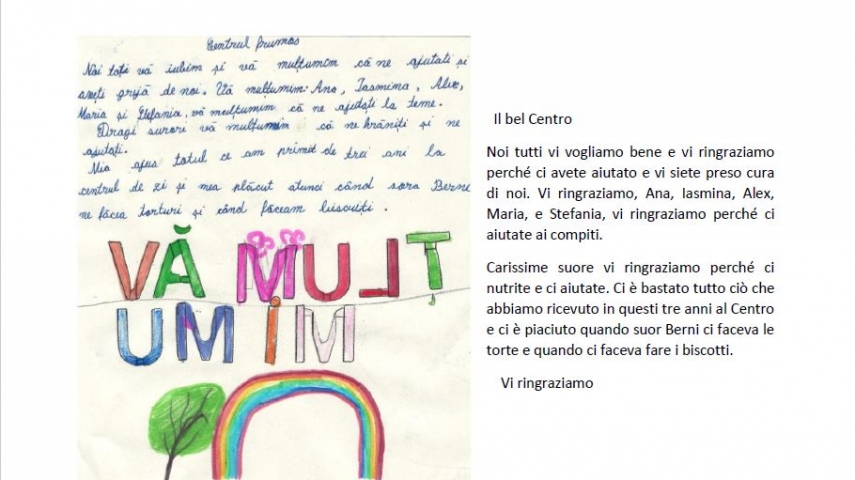 Centrul frumos
Noi toți vă iubim și vă mulțumim că ne ajutati și
aveți grijă de noi. Vă mulțumim: Ana, Iasmima, Alex,
Maria și Ștefania, vă mulțumim că ne ajutați la teme.
Dragi surori vă mulțumim că ne hrăniți și ne
ajutați.
Mia ajus totul ce am primit de trei ani la
centrul de zi și mea plăcut atunci când sora Berni
ne făcea torturi și când făceam biscuiți.
VĂ MULȚ
UMIM
Il bel Centro
Noi tutti vi vogliamo bene e vi ringraziamo
perché ci avete aiutato e vi siete preso cura
di noi. Vi ringraziamo, Ana, Iasmina, Alex,
Maria, e Stefania, vi ringraziamo perché ci
aiutate ai compiti.
Carissime suore vi ringraziamo perché ci
nutrite e ci aiutate. Ci è bastato tutto ciò che
abbiamo ricevuto in questi tre anni al Centro
e ci è piaciuto quando suor Berni ci faceva le
torte e quando ci faceva fare i biscotti.
Vi ringraziamo